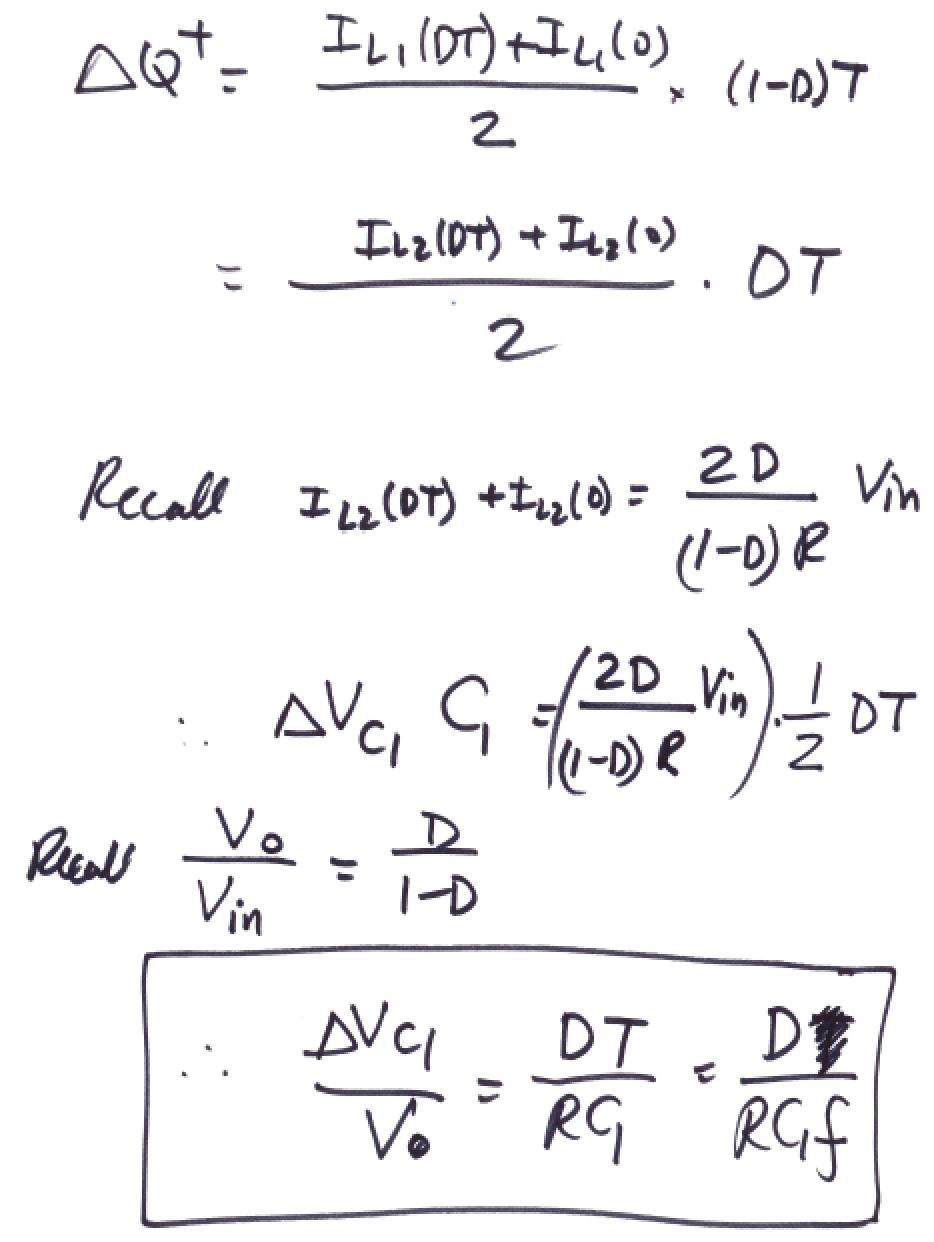 ΔQ⁺ = (I_L1(DT) + I_L1(0))/2 · (1-D)T
= (I_L2(DT) + I_L2(0))/2 · DT
Recall I_L2(DT) + I_L2(0) = 2D/((1-D)R) Vin
∴ ΔV_C1 C_1 = (2D/((1-D)R) Vin) · 1/2 DT
Recall Vo/Vin = D/(1-D)
∴ ΔV_C1/Vo = DT/(RC_1) = D/(RC_1f)